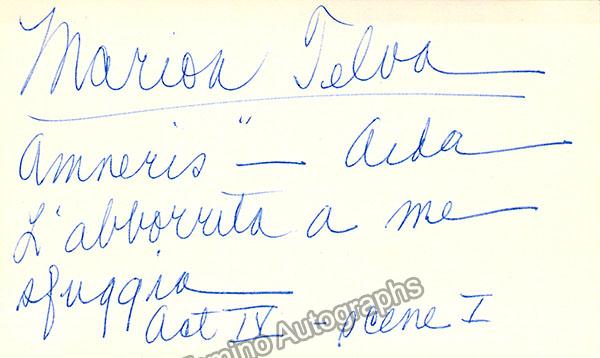 Marion Telva
Amneris" — Aida
L'abborrita a me
sfuggia
Act IV - scene I
Tamino Autographs